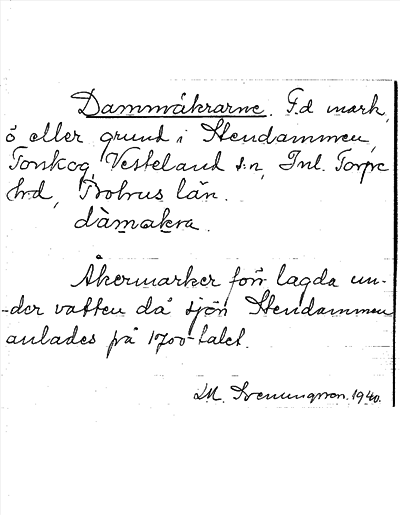 Dammåkrarne. F.d mark,
ö eller grund i Stendammen,
Torskog, Västerland s:n, Inl. Torpe
hrd, Bohus län.
dàmakra.
Åkermarker förr lagda un-
-der vatten då sjön Stendammen
anlades på 1700-talet.
1940.